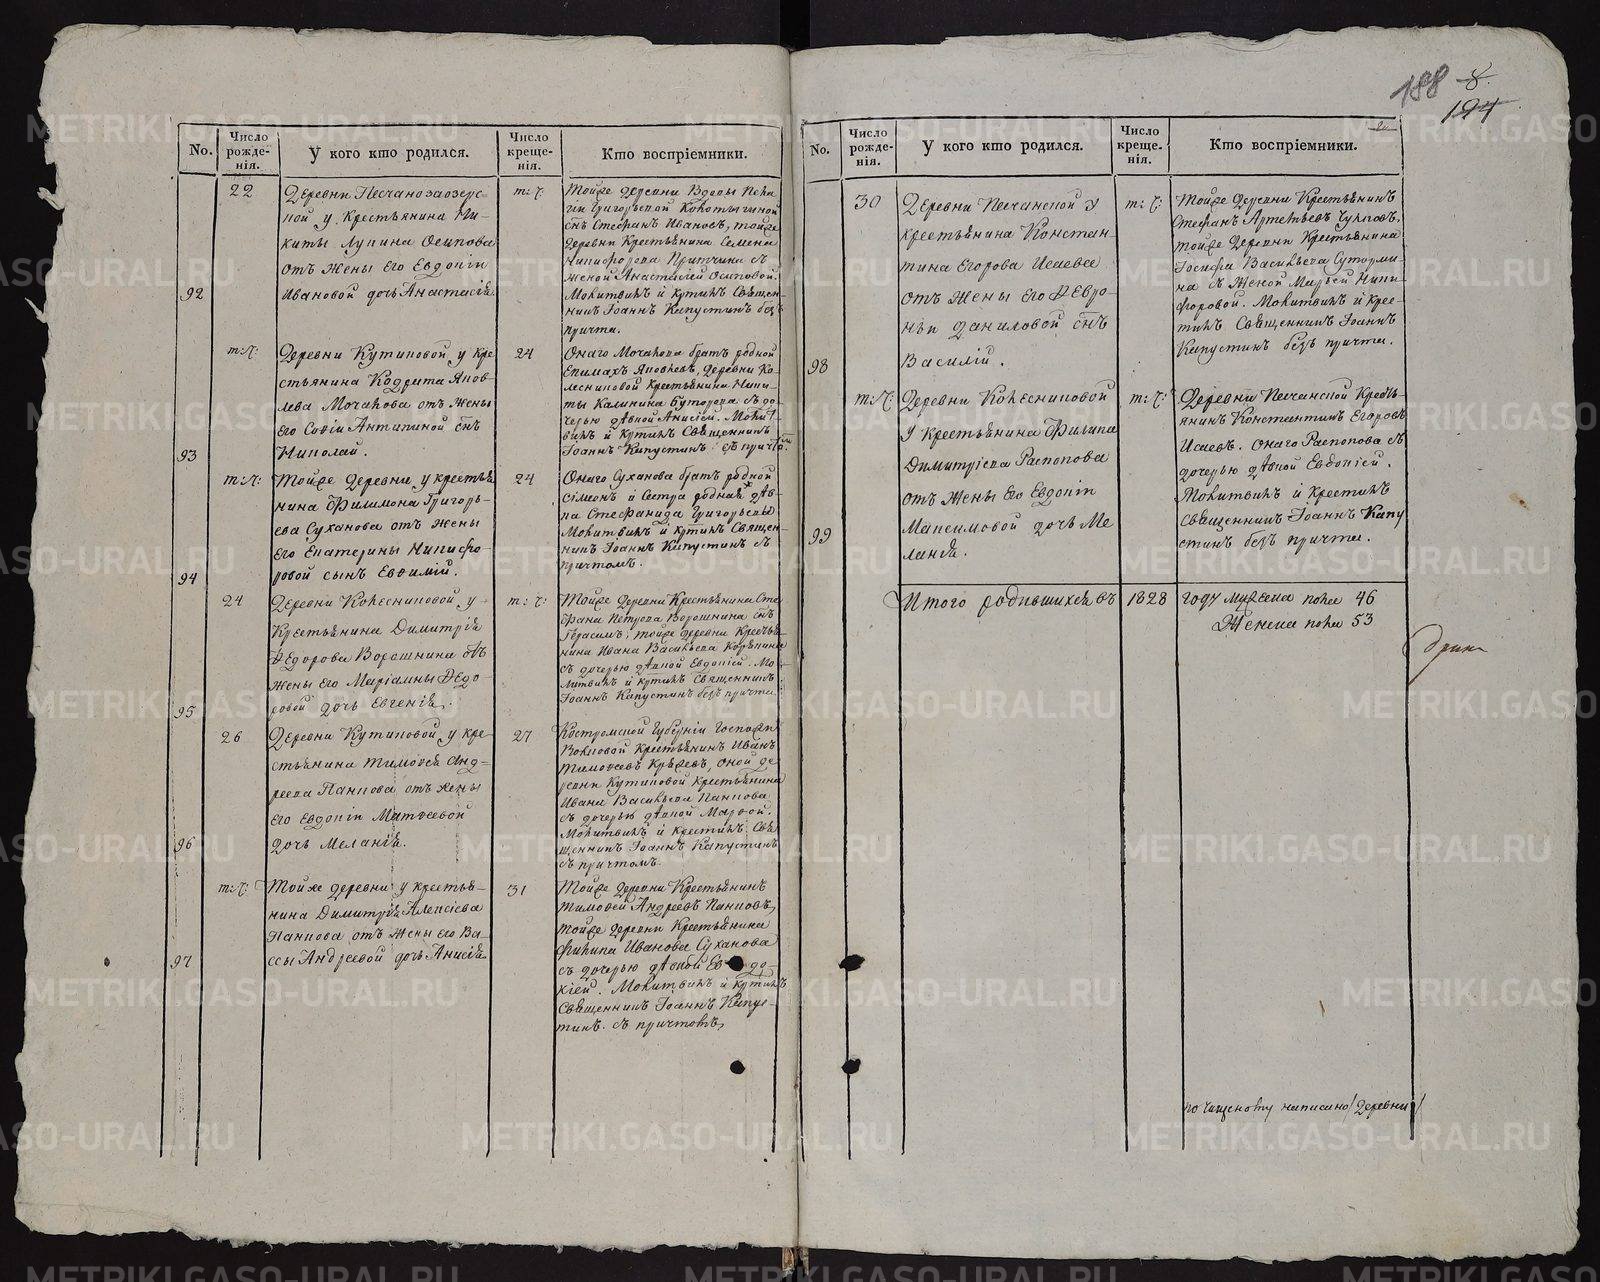 188 8.
194
No.
Число рожде-нія.
У кого кто родился.
Число креще-нія.
Кто воспріемники.
92
22
Деревни Песчанозаозерс-
кой у Крестьянина Ни-
киты Лупина Осипова
отъ жены его Евдокіи
Ивановой дочь Анастасія
т: ч:
Тойже деревни Вдовы Пела-
гіи Григорьевой Колотыгиной
сынъ Стефанъ Ивановъ, тойже
деревни Крестьянина Семена
Никифорова Притчина съ
женой Анастасіей Осиповой.
Молитвилъ и крстилъ Священ-
никъ Іоаннъ Капустинъ безъ
причта.
93
т: ч:
Деревни Кутиковой у кре-
стьянина Кодрата Яков-
лева Мочалова отъ жены
его Софіи Антипиной снъ
Николай.
24
Онаго Мочалова братъ родной
Епимахъ Яковлевъ, деревни Ко-
лесниковой крестьянина Ники-
ты Калинина Буторина съ до-
черью дѣвкой Анисіей. Молит-
вилъ и крстилъ Священникъ
Іоаннъ Капустинъ съ причтомъ.
94
т: ч:
Тойже деревни у крестья-
нина Филимона Григорь-
ева Суханова отъ жены
его Екатерины Никифо-
ровой сынъ Евфимій.
24
Онаго Суханова братъ родной
Сімонъ и сестра родная дѣв-
ка Стефанида Григорьевы
Молитвилъ и крстилъ Священ-
никъ Іоаннъ Капустинъ съ
причтомъ.
95
24
Деревни Колесниковой у
Крестьянина Димитрія
Федорова Ворошнина отъ
жены его Маріамны Федо-
ровой дочь Евгенія.
т: ч:
Тойже деревни Крестьянина Сте-
фана Петрова Ворошнина снъ
Герасимъ, тойже деревни Крестья-
нина Ивана Васильева
съ дочерью дѣвкой Евдокіей. Мо-
литвилъ и крстилъ Священникъ
Іоаннъ Капустинъ безъ причта.
96
26
Деревни Кутиковой у кре-
стьянина Тимофея Анд-
реева Панкова отъ жены
его Евдокіи Матвеевой
дочь Меланія.
27
Костромской Губерніи Господжи
Волковой крестьянинъ Иванъ
Тимофеевъ, оной де-
ревни Кутиковой крестьянина
Ивана Васильева Панкова
съ дочерью дѣвкой Марфой.
Молитвилъ и крестилъ Свя-
щенникъ Іоаннъ Капустинъ
съ причтомъ.
97
т: ч:
Тойже деревни у крестья-
нина Димитрія Алексіева
Панкова отъ жены его Ва-
ссы Андреевой дочь Анисія
31
Тойже деревни Крестьянинъ
Тимофей Андреевъ Панковъ,
тойже деревни Крестьянина
Филипа Иванова Суханова
съ дочерью дѣвкой Евдо-
кіей. Молитвилъ и крстилъ
Священникъ Іоаннъ Капус-
тинъ съ причтомъ,
No.
Число рожде-нія.
У кого кто родился.
Число креще-нія.
Кто воспріемники.
98
30
Деревни Песчанской у
крестьянина Констан-
тина Егорова Исаева
отъ жены его Февро-
ньи Даниловой снъ
Василій.
т: ч:
Тойже деревни Крестьянинъ
Стефанъ Артемьевъ
тойже деревни Крестьянина
Іосифа Васильева Сутурми-
на съ женой Марьей Ники-
форовой. Молитвилъ и крес-
тилъ Священникъ Іоаннъ
Капустинъ безъ причта.
99
т: ч:
Деревни Колесниковой
у крестьянина Филипа
Димитріева Распопова
отъ жены его Евдокіи
Максимовой дочь Ме
ланія.
т: ч:
Деревни Песчанской Крестья-
янинъ Константинъ Егоровъ
Исаевъ. Онаго Распопова съ
дочерью дѣвкой Евдокіей.
Молитвилъ и крестилъ
Священникъ Іоаннъ Капу
стинъ безъ причта.
Итого родившихся въ 1828 году мужеска пола 46
Женска пола 53
по чищеному написано/деревни/